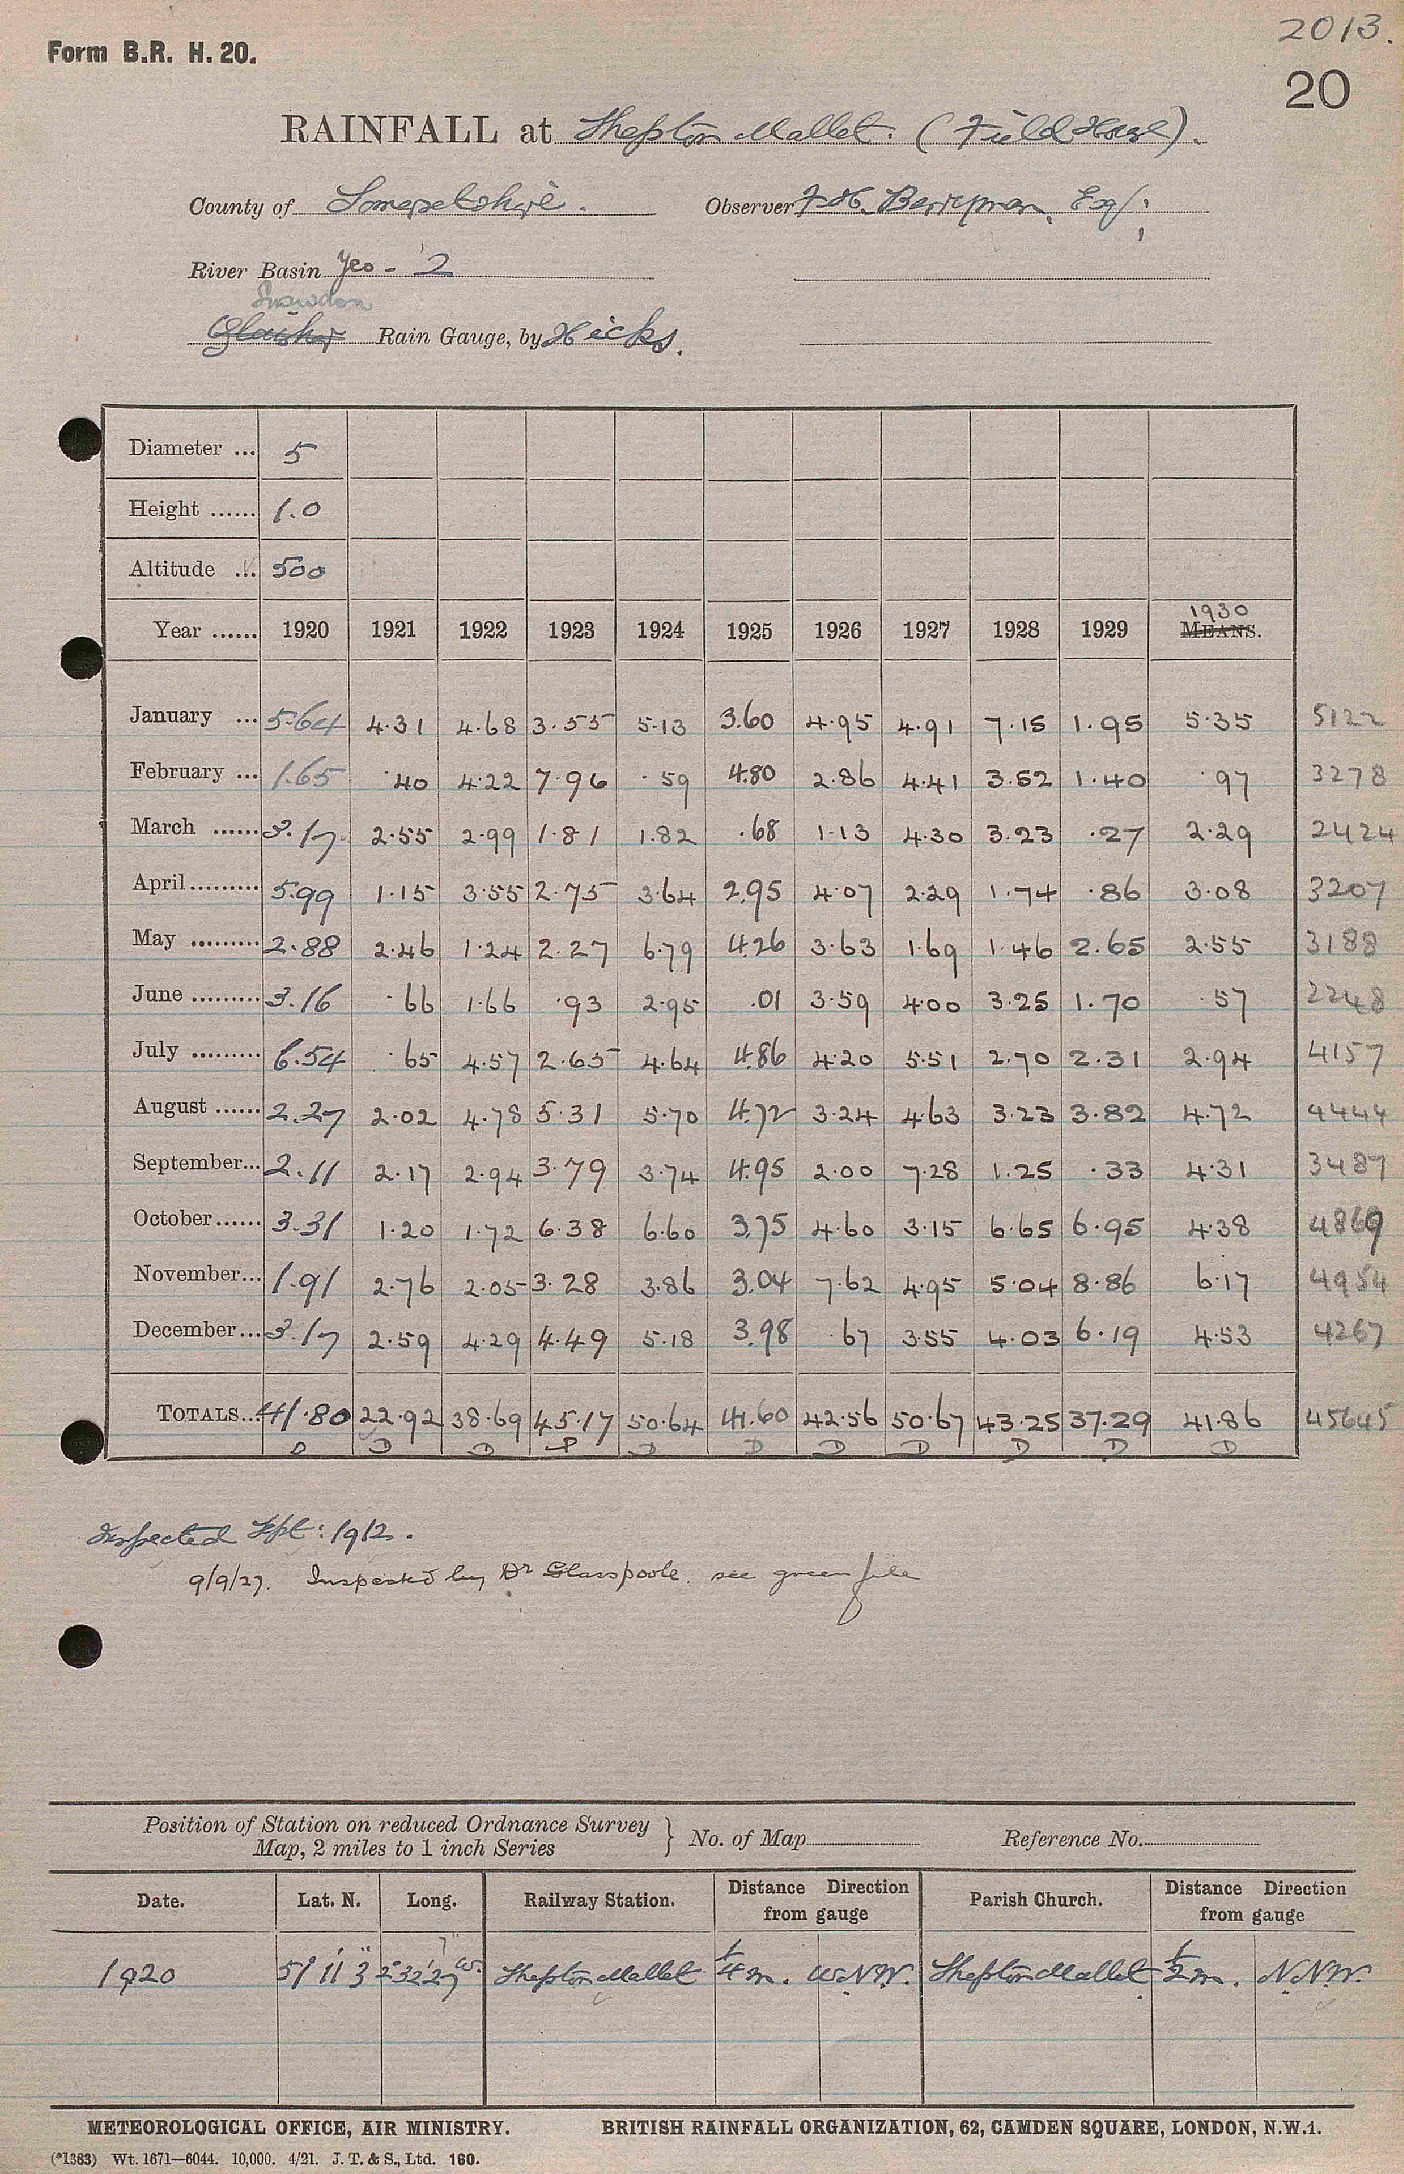 2013.
Form B.R. H. 20.
20
RAINFALL at Shepton Mallet. (Field House).
County of Somersetshire. Observer F. H. Berryman, Esq;
River Basin Yeo - 2
Snowdon
Glaisher Rain Gauge, by Hicks.
Diameter ... 5
Height ...... 1.0
Altitude ... 500
1930
Year ...... 1920 1921 1922 1923 1924 1925 1926 1927 1928 1929 MEANS.
January ... 5.64 4.31 4.68 3.55 5.13 3.60 4.95 4.91 7.15 1.95 5.35 5122
February ... 1.65 .40 4.22 7.96 .59 4.80 2.86 4.41 3.52 1.40 .97 3278
March ...... 3.17 2.55 2.99 1.81 1.82 .68 1.13 4.30 3.23 .27 2.29 2424
April......... 5.99 1.15 3.55 2.75 3.64 2.95 4.07 2.29 1.74 .86 3.08 3207
May ......... 2.88 2.46 1.24 2.27 6.79 4.26 3.63 1.69 1.46 2.65 2.55 3188
June ......... 3.16 .66 1.66 .93 2.95 .01 3.59 4.00 3.25 1.70 .57 2248
July ......... 6.54 .65 4.57 2.65 4.64 4.86 4.20 5.51 2.70 2.31 2.94 4157
August ...... 2.27 2.02 4.78 5.31 5.70 4.72 3.24 4.63 3.23 3.82 4.72 4444
September... 2.11 2.17 2.94 3.79 3.74 4.95 2.00 7.28 1.25 .33 4.31 3487
October...... 3.31 1.20 1.72 6.38 6.60 3.75 4.60 3.15 6.65 6.95 4.38 4869
November... 1.91 2.76 2.05 3.28 3.86 3.04 7.62 4.95 5.04 8.86 6.17 4954
December... 3.17 2.59 4.29 4.49 5.18 3.98 .67 3.55 4.03 6.19 4.53 4267
TOTALS... 41.80 22.92 38.69 45.17 50.64 41.60 42.56 50.67 43.25 37.29 41.86 45645
D D D P D D D D D D D
Inspected Sept: 1912.
9/9/27. Inspected by Dr Glasspoole. see green file
Position of Station on reduced Ordnance Survey
Map, 2 miles to 1 inch Series } No. of Map Reference No.
Date. Lat. N. Long. Railway Station. Distance Direction from gauge Parish Church. Distance Direction from gauge
1920 51 11' 3" 2 32' 27" W. Shepton Mallet 1/4 m. W.N.W. Shepton Mallet 1/2 m. N.N.W.
METEOROLOGICAL OFFICE, AIR MINISTRY. BRITISH RAINFALL ORGANIZATION, 62, CAMDEN SQUARE, LONDON, N.W.1.
(*1383) Wt. 1671—6044. 10,000. 4/21. J. T. & S., Ltd. 160.